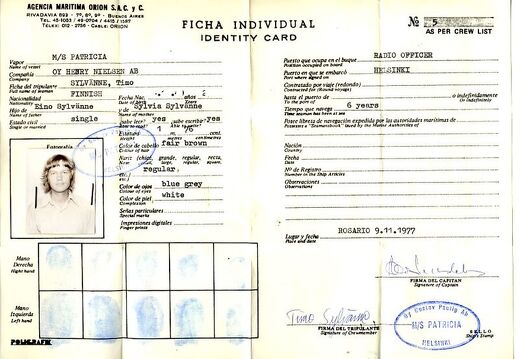 AGENCIA MARITIMA ORION S.A.C. y C.
RIVADAVIA 893 - 7º, 8º, 9º - BUENOS AIRES
FICHA INDIVIDUAL
IDENTITY CARD
№ 5
AS PER CREW LIST
Vapor M/S PATRICIA
Name of vessel
Compañía OY HENRY NIELSEN AB
Company
Ficha del tripulante SYLVÄNNE, Timo
Nacionalidad FINNISH Fecha Nac.
Nationality
Hijo de Eino Sylvänne y Sylvia Sylvänne
Name of father Name of mother
Estado civil single ¿Sabe leer? yes ¿sabe escribir? yes
Single or married
Estatura 1 m. 76 cent.
Fotografía
Color de cabello fair brown
Colour of hair
Nariz (chica, grande, regular, recta,
regular,
Color de ojos blue grey
Colour of eyes
Color de piel white
Complexion
Señas particulares
Special marks
Impresiones digitales
Finger prints
Mano
Derecha
Right hand
Mano
Izquierda
Left hand
POLIGRAFIK
Puesto que ocupa en el buque RADIO OFFICER
Position occupied on board
Puerto en que se embarcó HELSINKI
Port where signed on
Contratado por viaje (redondo)
Contracted for (Round voyage)
hasta el puerto de o indefinidamente
To the port of Or indefinitely
Tiempo que navega 6 years
Time seaman has been at sea
Posee libreta de navegación expedida por las autoridades marítimas de
Possess a "Seamansbook" issued by the Marine Authorities of
Nación
Country
Fecha
Date
Nº de Registro
Number of the Ship Articles
Observaciones
Observations
Lugar y fecha ROSARIO 9.11.1977
Place and date
FIRMA DEL CAPITAN
Signature of Captain
Timo Sylvänne
FIRMA DEL TRIPULANTE
Signature of Crewmember
M/S PATRICIA
HELSINKI
SELLO
Ship's Stamp